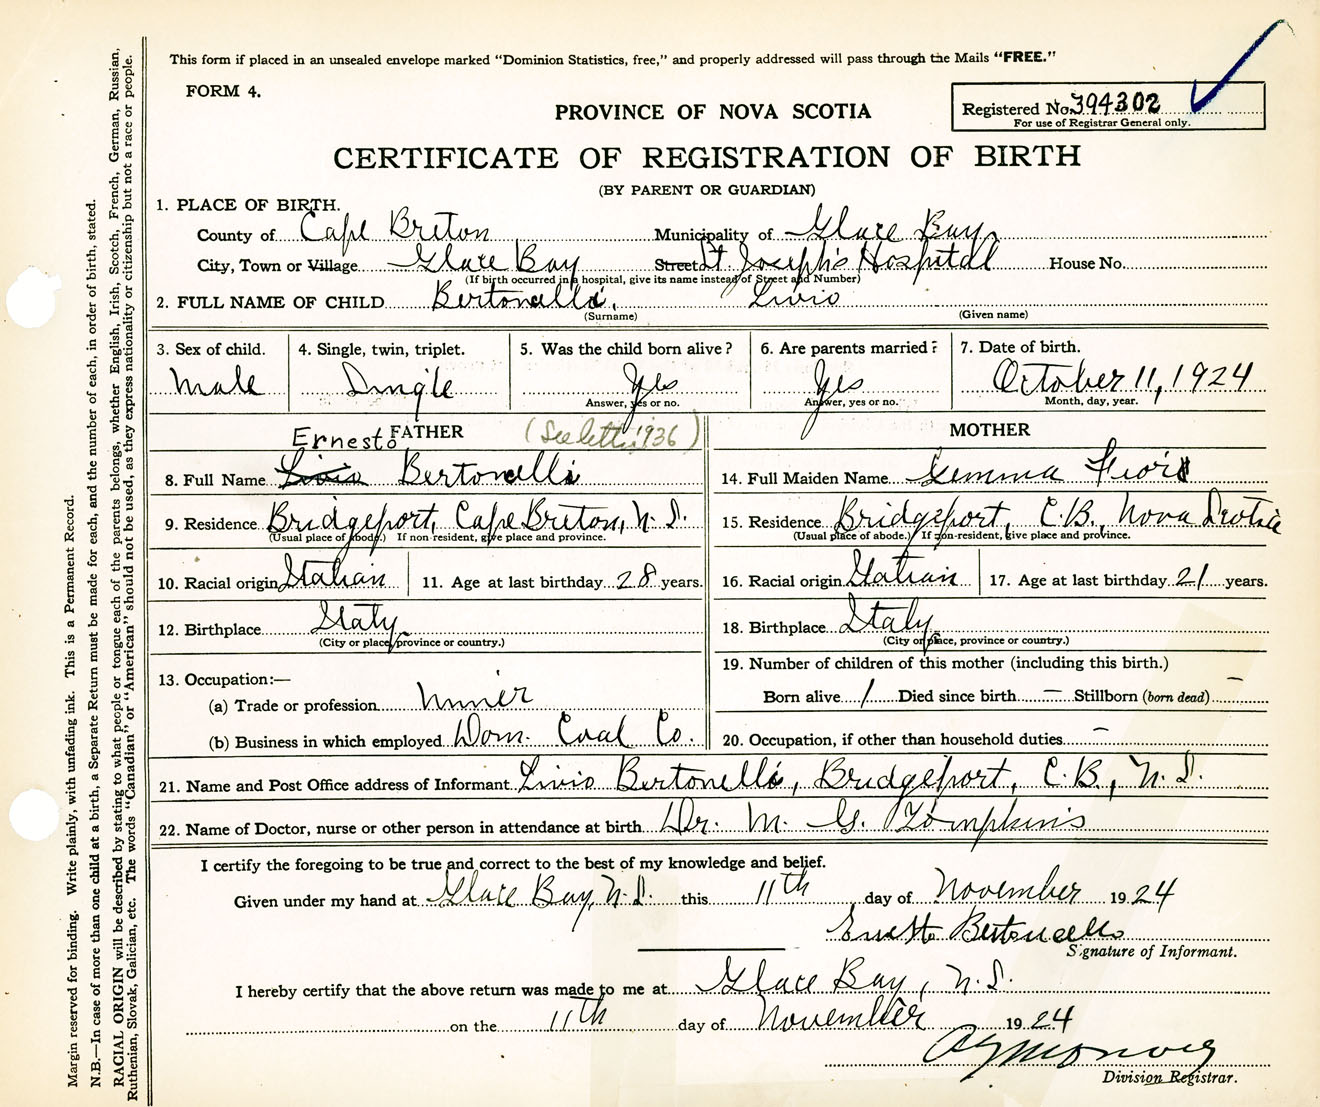 This form if placed in an unsealed envelope marked “Dominion Statistics, free,” and properly addressed will pass through the Mails “FREE.”
FORM 4.
PROVINCE OF NOVA SCOTIA
Registered No. 394302
For use of Registrar General only.
CERTIFICATE OF REGISTRATION OF BIRTH
(BY PARENT OR GUARDIAN)
1. PLACE OF BIRTH.
County of Cape Breton Municipality of Glace Bay
City, Town or Village Glace Bay Street St Joseph's Hospital House No.
(If birth occurred in a hospital, give its name instead of Street and Number)
2. FULL NAME OF CHILD Bertonelli, Livio
(Surname) (Given name)
3. Sex of child. 4. Single, twin, triplet. 5. Was the child born alive? 6. Are parents married? 7. Date of birth.
Male Single Yes Yes October 11, 1924
Answer, yes or no. Answer, yes or no. Month, day, year.
Ernesto FATHER (See letter 1936) MOTHER
8. Full Name Livio Bertonelli 14. Full Maiden Name Gemma
9. Residence Bridgeport, Cape Breton, N.S. 15. Residence Bridgeport, C.B., Nova Scotia
(Usual place of abode.) If non-resident, give place and province. (Usual place of abode.) If non-resident, give place and province.
10. Racial origin Italian 11. Age at last birthday 28 years. 16. Racial origin Italian 17. Age at last birthday 21 years.
12. Birthplace Italy 18. Birthplace Italy
(City or place, province or country.) (City or place, province or country.)
19. Number of children of this mother (including this birth.)
13. Occupation:—
Born alive 1 Died since birth — Stillborn (born dead) —
(a) Trade or profession Miner
(b) Business in which employed Dom. Coal Co. 20. Occupation, if other than household duties —
21. Name and Post Office address of Informant Livio Bertonelli, Bridgeport, C.B., N.S.
22. Name of Doctor, nurse or other person in attendance at birth Dr. M. G. Tompkins
I certify the foregoing to be true and correct to the best of my knowledge and belief.
Given under my hand at Glace Bay, N.S. this 11th day of November 1924
Ernesto Bertoncello
Signature of Informant.
I hereby certify that the above return was made to me at Glace Bay, N.S.
on the 11th day of November 1924
Division Registrar.
Margin reserved for binding. Write plainly, with unfading ink. This is a Permanent Record.
N.B.—In case of more than one child at a birth, a Separate Return must be made for each, and the number of each, in order of birth, stated.
RACIAL ORIGIN will be described by stating to what people or tongue each of the parents belongs, whether English, Irish, Scotch, French, German, Russian,
Ruthenian, Slovak, Galician, etc. The words “Canadian” or “American” should not be used, as they express nationality or citizenship but not a race or people.